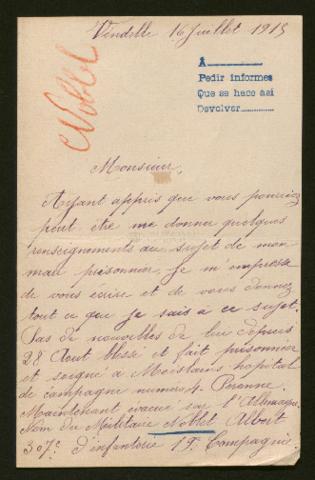 Vindelle 16 Juillet 1915
Noblet
A
Pedir informes
Que se hace asi
Devolver
Monsieur,
Ayant appris que vous pourriez
peut être me donner quelques
renseignements au sujet de mon
mari prisonnier, je m'empresse
de vous écrire et de vous donner
tout ce que je sais à ce sujet.
Pas de nouvelles de lui depuis
28 Aout blessé et fait prisonnier
et soigné a Moislains hopital
de campagne numero 4 Peronne.
Maintenant évacué sur l'Allemagne
Nom du Militaire Noblet Albert
307e d'infanterie 19e Compagnie.